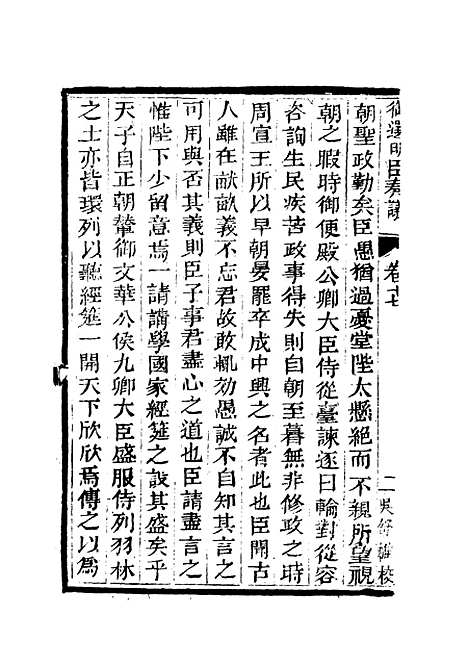 御選明臣奏議 卷十七 二 吳舒帷校
朝聖政勤矣臣愚猶過憂堂陛太懸絕而不親所望視
朝之暇時御便殿公卿大臣侍從臺諫逐日輪對從容
咨詢生民疾苦政事得失則自朝至暮無非修政之時
周宣王所以早朝晏罷卒成中興之名者此也臣聞古
人雖在畎畝義不忘君故敢輒効愚誠不自知其言之
可用與否其義則臣子事君盡心之道也臣請盡言之
惟陛下少留意焉一請講學國家經筵之設其盛矣乎
天子自正朝輦御文華公侯九卿大臣盛服侍列羽林
之士亦皆環列以聽經筵一開天下欣欣焉傳之以為